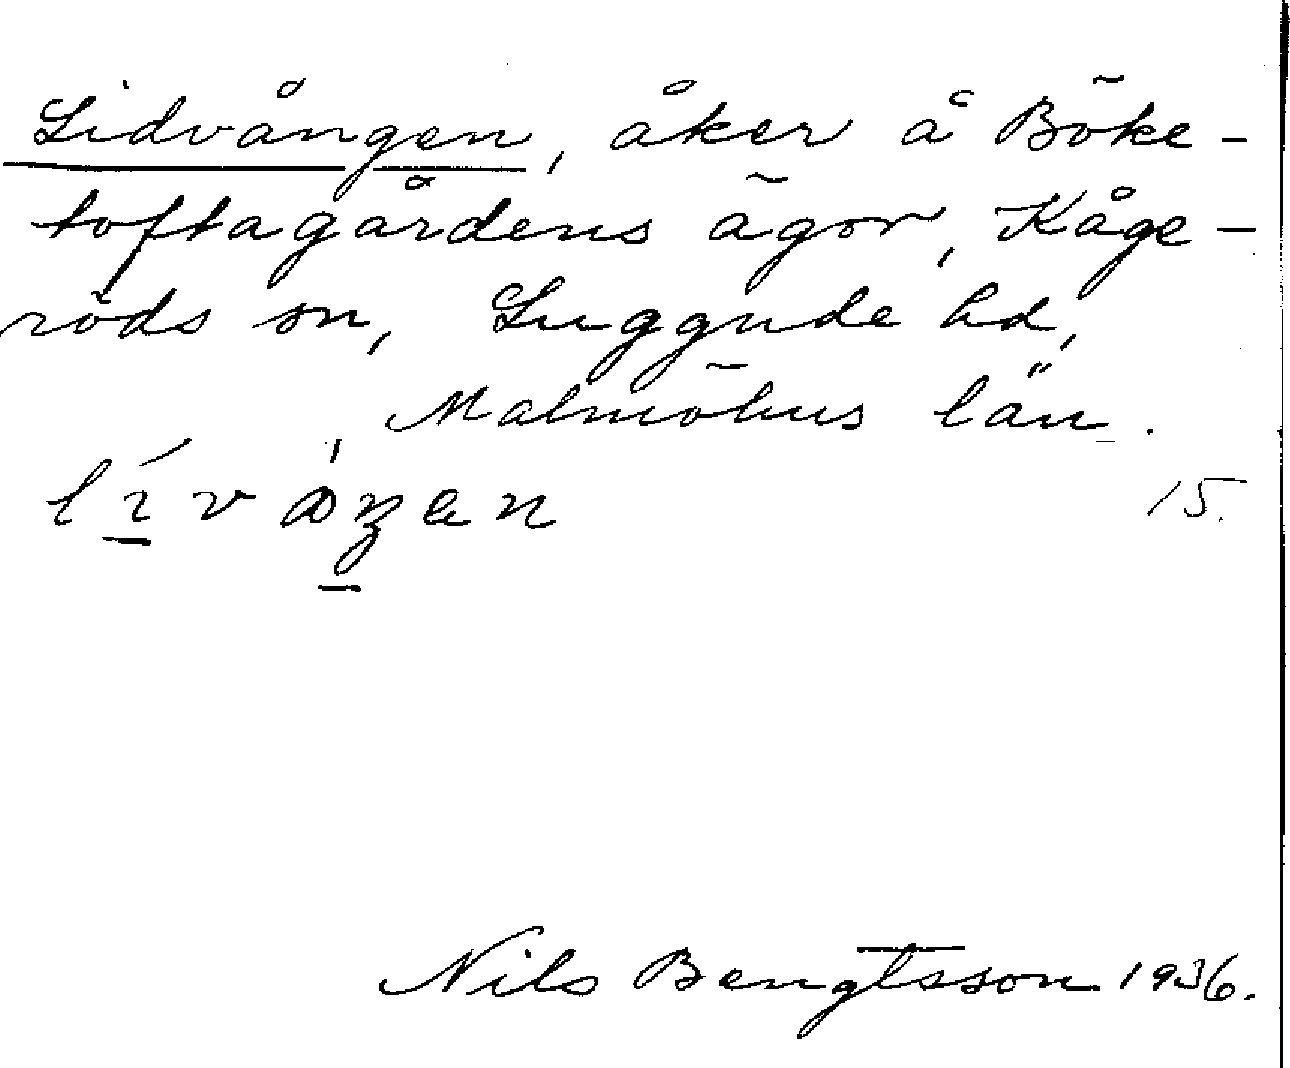 Lidvången, åker å Böke-
toftagårdens ägor, Kåge-
röds sn, Luggude hd,
Malmöhus län.
15.
Nils Bengtsson 1936.